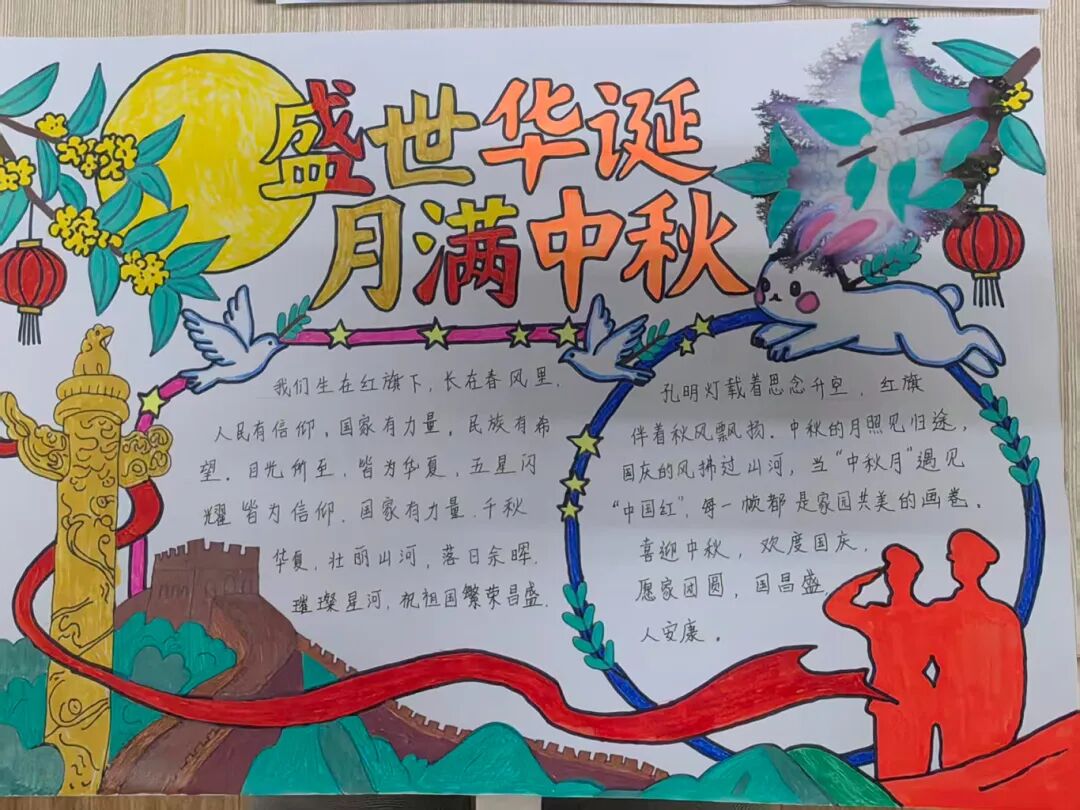 盛世华诞
月满中秋
我们生在红旗下，长在春风里，
人民有信仰，国家有力量，民族有希
望。目光所至，皆为华夏，五星闪
耀皆为信仰，国家有力量，千秋
华夏，壮丽山河，落日余晖，
璀璨星河，祝祖国繁荣昌盛.
孔明灯载着思念升空，红旗
伴着秋风飘扬．中秋的月照见归途，
国庆的风拂过山河，当“中秋月”遇见
“中国红”，每一帧都是家国共美的画卷。
喜迎中秋，欢度国庆，
愿家团圆，国昌盛
人安康。